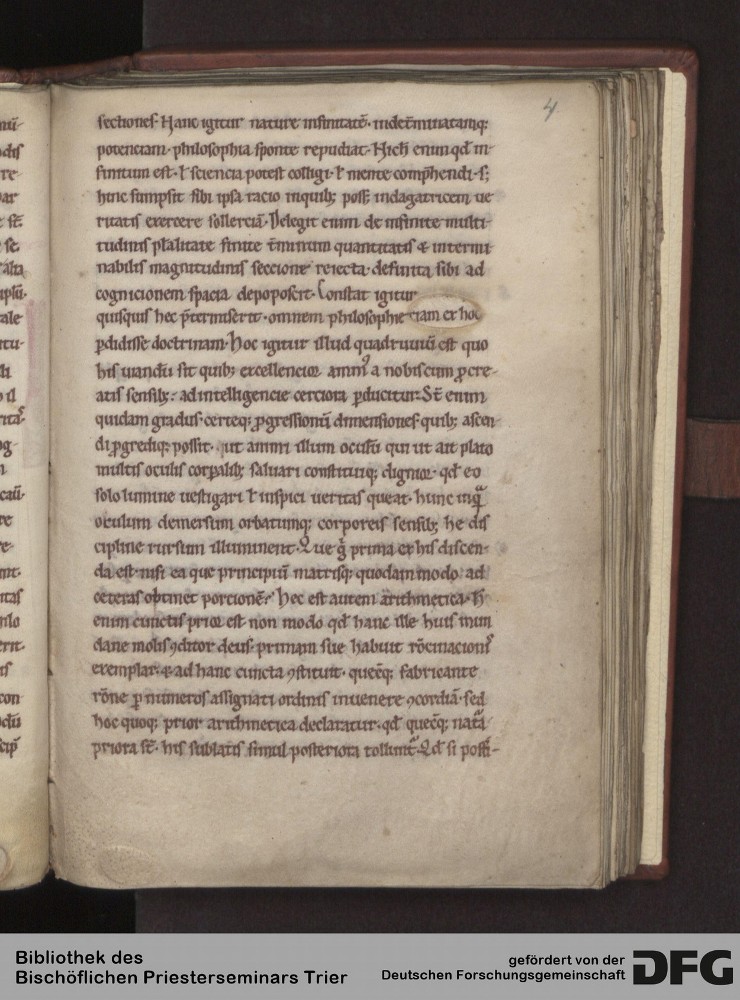 4
sectiones. Hanc igitur nature infinitatē. indet̄minatamq;
potenciam. philosophia sponte repudiat. Nichil enim qd̄ in-
finitum est. ł sciencia potest colligi. ł mente comp̄hendi. s;
hinc sumpsit sibi ipsa racio in quib; posset indagatricem ue
ritatis exercere sollerciā. Delegit enim de infinite multi-
tudinis plalitate finite t̄minum quantitatis & intermi
nabilis magnitudinis seccione reiecta. definita sibi ad
cognicionem spacia depoposcit. Constat igitur
quisquis hec p̄termiserit. omnem philosophie etiam ex hoc
ꝑdidisse doctrinam. Hoc igitur illud quadruuiū est quo
his uiandū sit quib; excellencior anim9 a nobiscum ꝓcre-
atis sensib; ad intelligencie cerciora ꝑducitur. St̄ enim
quidam gradus. certeq; ꝓgressionū dimensiones quib; ascen-
di ꝓgrediq; possit. ut animi illum oculū qui ut ait plato
multis oculis corꝑalib; saluari constituiq; dignior. qd̄ eo
solo lumine uestigari ł inspici ueritas queat. hunc inquā
oculum demersum orbatumq; corporeis sensib; he dis
cipline rursum illuminent. Que g̊ prima ex his discen-
da est. nisi ea que principiū matrisq; quodam modo ad
ceteras optinet porcionē. Hec est autem arithmetica. H̄
enim cunctis prior est non modo qd̄ hanc ille huis mun
dane molis ꝯditor deus. primam sue habuit rōcinacionis
exemplar. & ad hanc cuncta ꝯstituit. quecq; fabricante
rōne ꝑ numeros assignati ordinis inuenere ꝯcordiā. sed
hoc quoq; prior arithmetica declaratur. qd̄ quecq; natᵃa
priora st̄. his sublatis simul posteriora tollunt̄. Qd̄ si posti-
Bibliothek des
Bischöflichen Priesterseminars Trier
gefördert von der
Deutschen Forschungsgemeinschaft
DFG